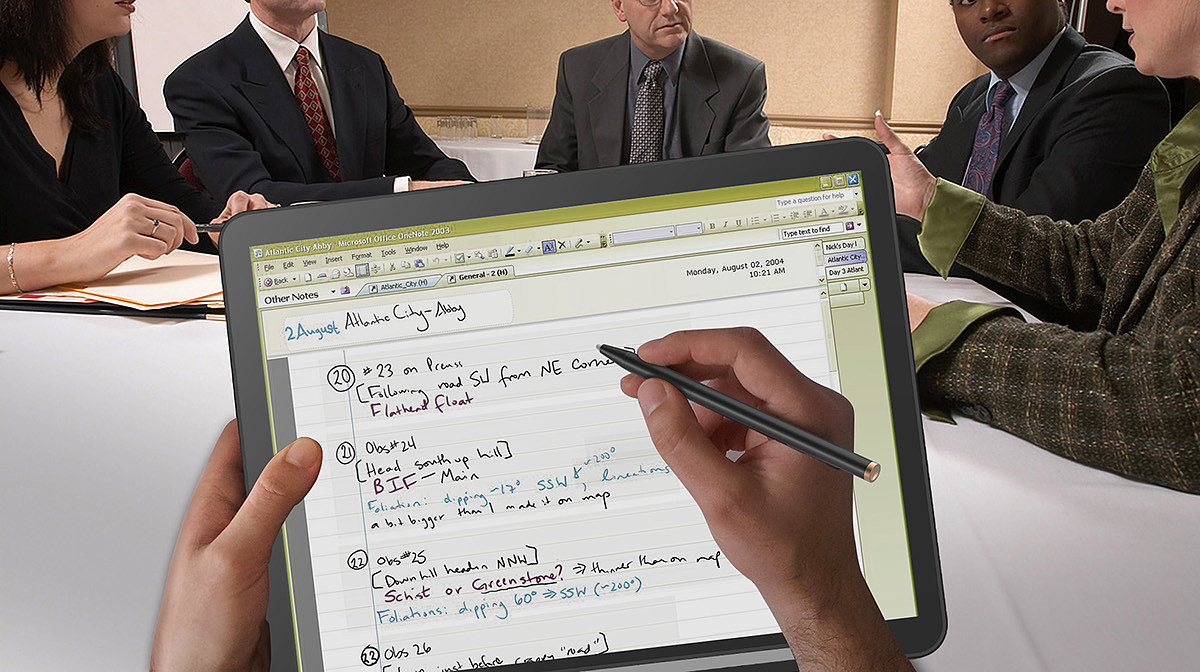 Atlantic City Abby - Microsoft Office OneNote 2003
File Edit View Insert Format Tools Window Help
Type a question for help
Back
Type text to find
Other Notes
Atlantic_City (H)
General - 2 (H)
Nick's Day I
Atlantic City...
Day 3 Atlant
Monday, August 02, 2004
10:21 AM
2 August Atlantic City - Abby
20 #23 on Preuss
[Following road SW from NE corner]
Flathead float
21 Obs#24
[Head south up hill]
BIF - Main
Foliation: dipping ~17° SSW ~200°, lineations
a bit bigger than I made it on map
22 Obs#25
[Downhill heading NNW]
Schist or Greenstone? ⇒ thinner than on map
Foliations: dipping 60° ⇒ SSW (~200°)
22 Obs 26
just before "road"]